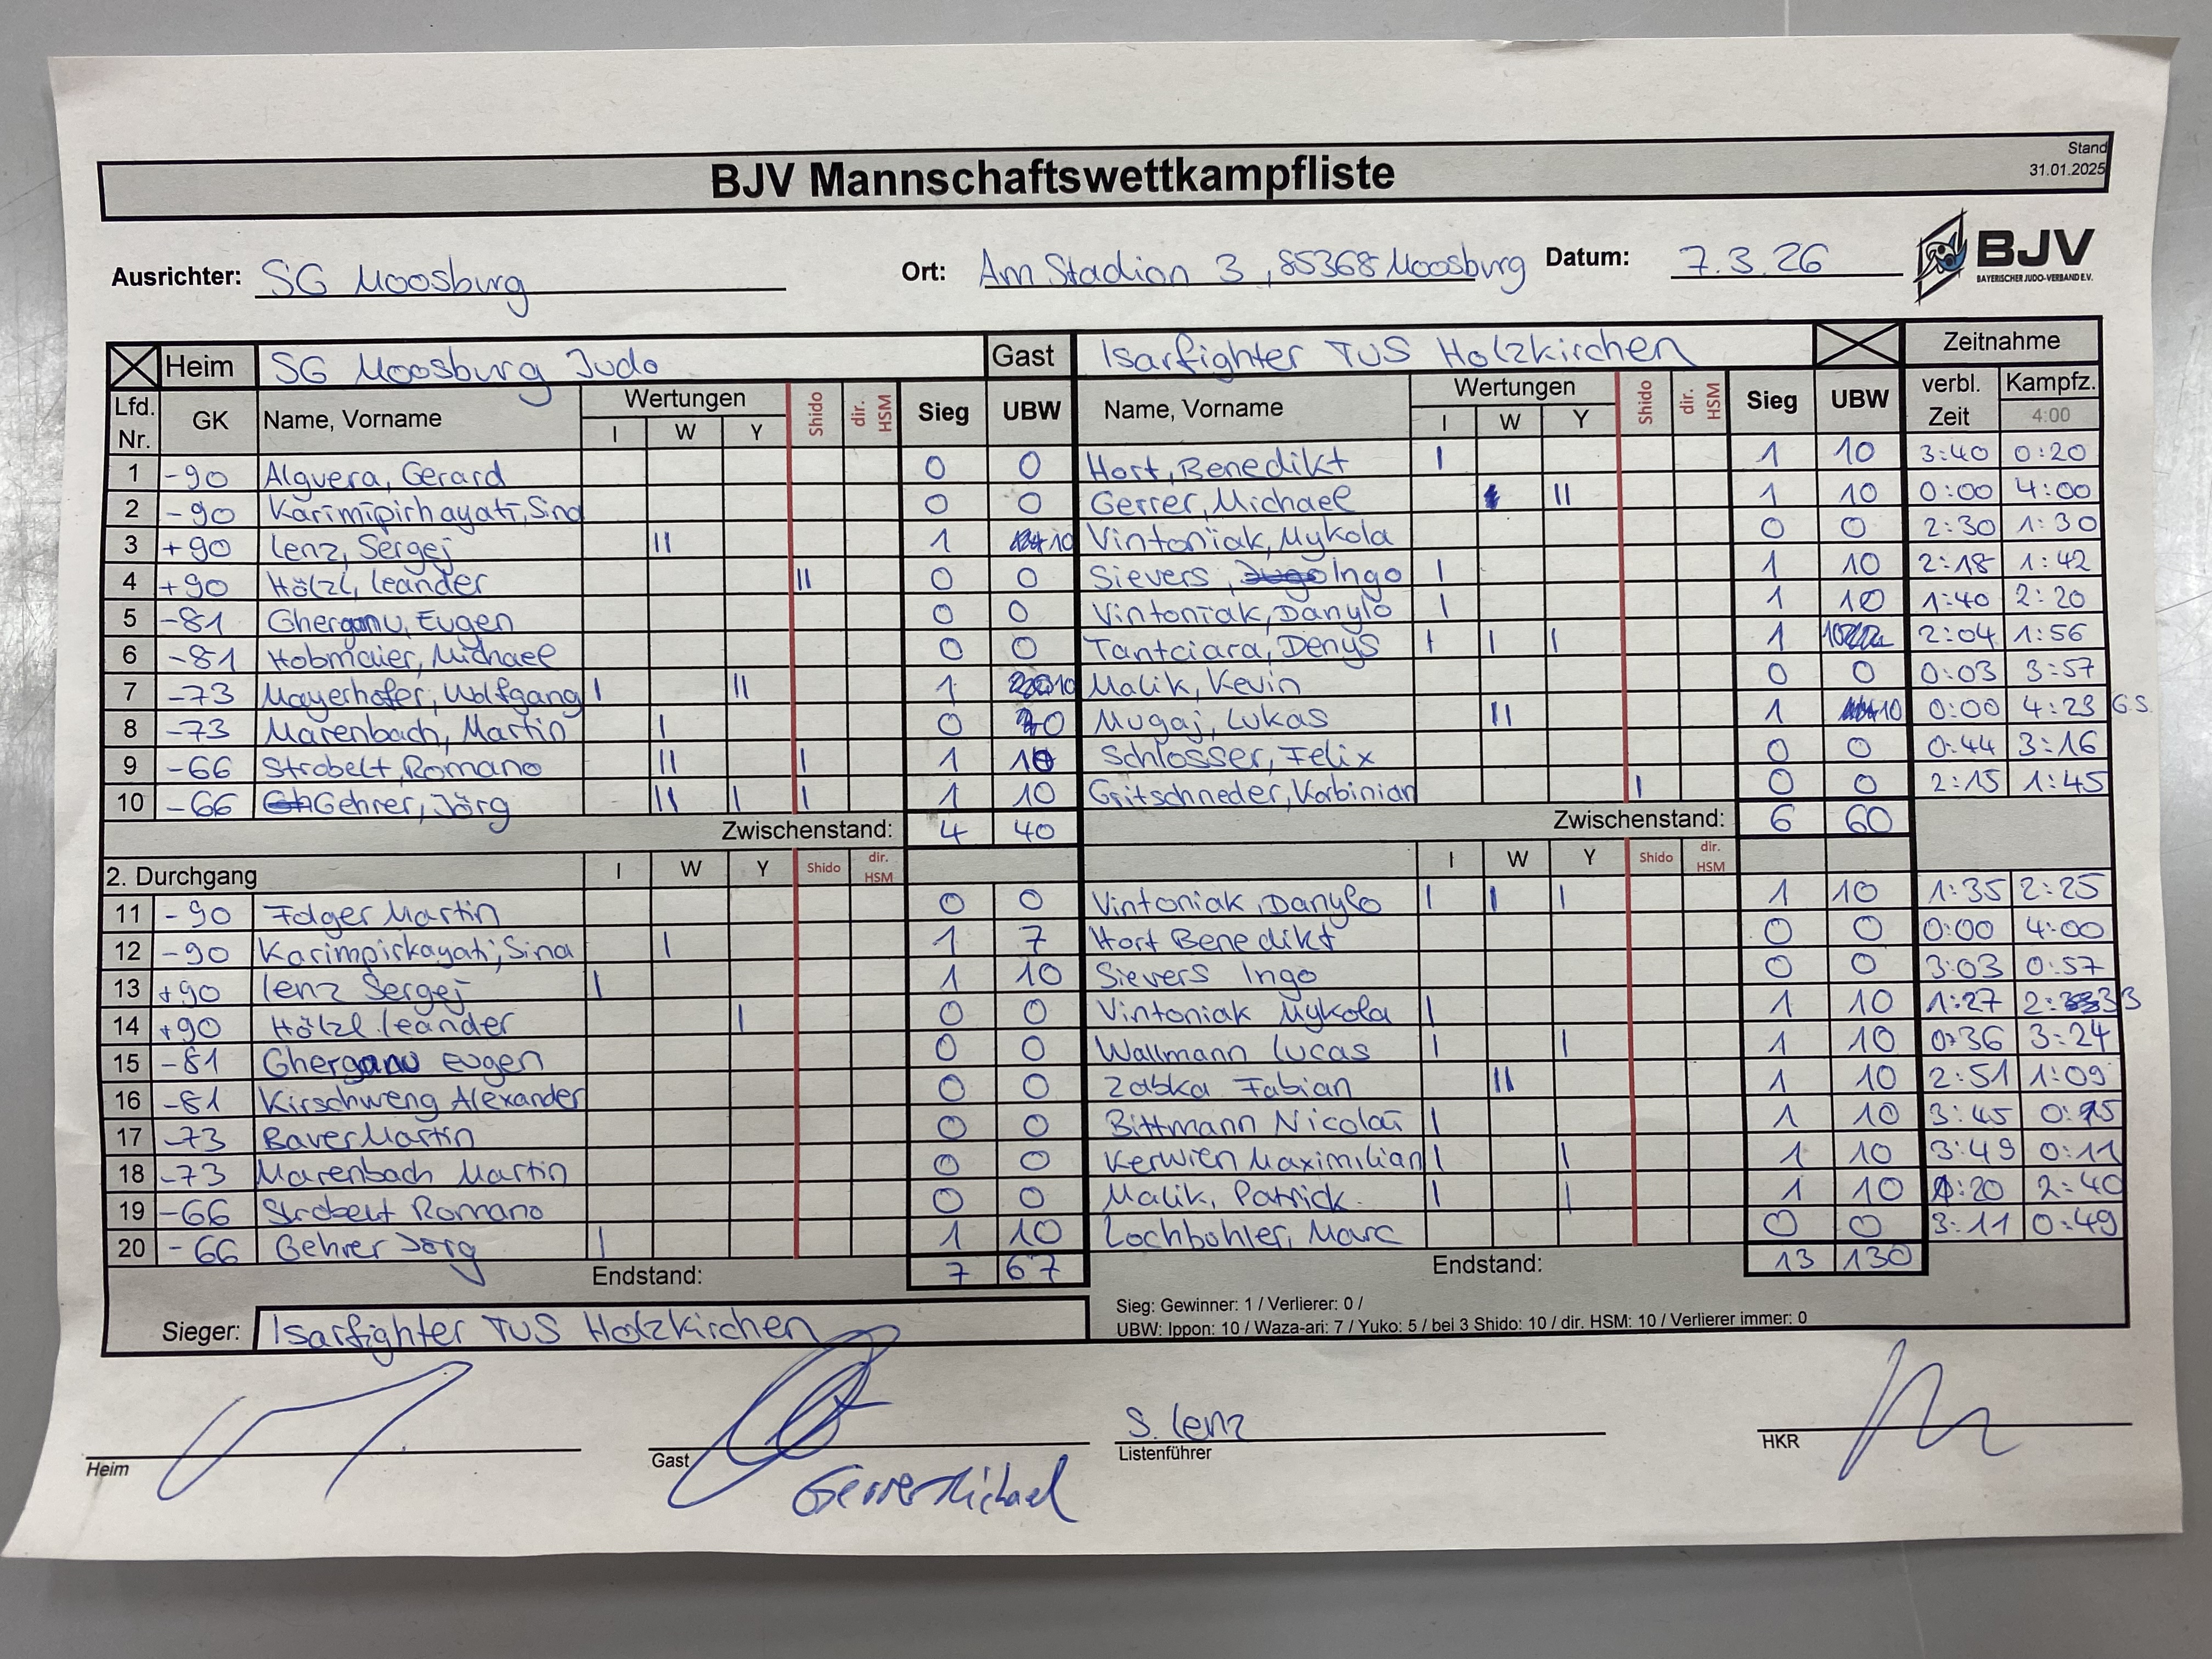 Stand
31.01.2025
BJV Mannschaftswettkampfliste
Ausrichter: SG Moosburg Ort: Am Stadion 3, 85368 Moosburg Datum: 7.3.26
BJV
BAYERISCHER JUDO-VERBAND E.V.
Heim SG Moosburg Judo Gast Isarfighter TUS Holzkirchen Zeitnahme
Lfd. Nr. GK Name, Vorname Wertungen I W Y Shido dir. HSM Sieg UBW Name, Vorname Wertungen I W Y Shido dir. HSM Sieg UBW verbl. Zeit Kampfz. 4:00
1 -90 Alguera, Gerard 0 0 Hort, Benedikt I 1 10 3:40 0:20
2 -90 Karimipirhayati, Sina 0 0 Gerrer, Michael II 1 10 0:00 4:00
3 +90 Lenz, Sergej II 1 10 Vintoniak, Mykola 0 0 2:30 1:30
4 +90 Hölzl, Leander II 0 0 Sievers, Ingo I 1 10 2:18 1:42
5 -81 Gherganu, Eugen 0 0 Vintoniak, Danylo I 1 10 1:40 2:20
6 -81 Hobmaier, Michael 0 0 Tantciara, Denys I I I 1 10 2:04 1:56
7 -73 Mayerhofer, Wolfgang I II 1 10 Malik, Kevin 0 0 0:03 3:57
8 -73 Marenbach, Martin I 0 0 Mugaj, Lukas II 1 10 0:00 4:23 G.S.
9 -66 Strobelt, Romano II I 1 10 Schlosser, Felix 0 0 0:44 3:16
10 -66 Gehrer, Jörg II I I 1 10 Gritschneder, Korbinian I 0 0 2:15 1:45
Zwischenstand: 4 40 Zwischenstand: 6 60
2. Durchgang I W Y Shido dir. HSM I W Y Shido dir. HSM
11 -90 Folger Martin 0 0 Vintoniak, Danylo I I I 1 10 1:35 2:25
12 -90 Karimpirkayati, Sina I 1 7 Hort Benedikt 0 0 0:00 4:00
13 +90 Lenz Sergej I 1 10 Sievers Ingo 0 0 3:03 0:57
14 +90 Hölzl Leander I 0 0 Vintoniak Mykola I 1 10 1:27 2:33
15 -81 Gherganu Eugen 0 0 Wallmann Lucas I I 1 10 0:36 3:24
16 -81 Kirschweng Alexander 0 0 Zabka Fabian II 1 10 2:51 1:09
17 -73 Bauer Martin 0 0 Bittmann Nicolai I 1 10 3:45 0:15
18 -73 Marenbach Martin 0 0 Kerwien Maximilian I I 1 10 3:49 0:11
19 -66 Strobelt Romano 0 0 Malik, Patrick I I 1 10 1:20 2:40
20 -66 Gehrer Jörg I 1 10 Lochbohler, Marc 0 0 3:11 0:49
Endstand: 7 67 Endstand: 13 130
Sieger: Isarfighter TUS Holzkirchen
Sieg: Gewinner: 1 / Verlierer: 0 /
UBW: Ippon: 10 / Waza-ari: 7 / Yuko: 5 / bei 3 Shido: 10 / dir. HSM: 10 / Verlierer immer: 0
S. Lenz
Heim Gast Listenführer HKR
Gerrer Michael